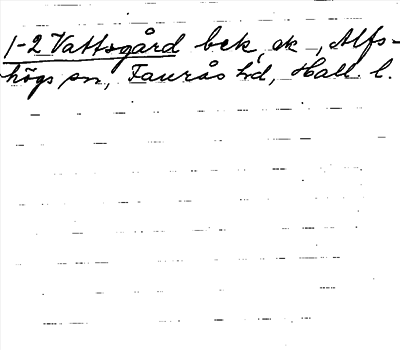 1-2 Vattsgård bck, ek –, Alfs-
högs sn, Faurås hd, Hall. l.